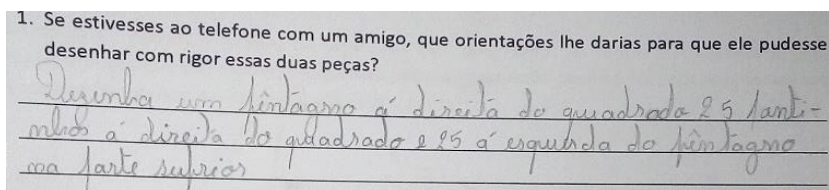 1. Se estivesses ao telefone com um amigo, que orientações lhe darias para que ele pudesse
desenhar com rigor essas duas peças?
Desenha um pentágno á direita do quadrado 25 santi-
mhos á direita do qudadrado e 25 á esquerda do pentagno
ma parte suprior